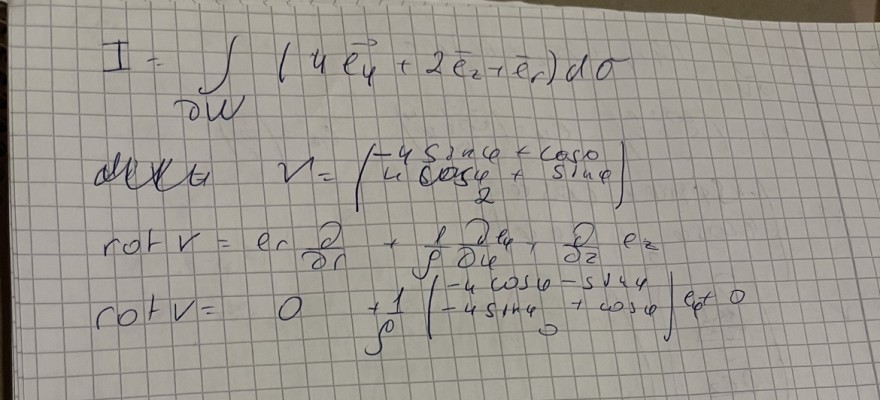 I = ∫ ( 4 e⃗φ + 2 e̅z + e̅r ) dσ
∂W
V = ( -4 sin φ + cos φ
4 cos φ + sin φ
2 )
rot v = er ∂/∂r + 1/ρ ∂eφ/∂φ + ∂/∂z ez
rot v = 0 + 1/ρ ( -4 cos φ - sin φ
-4 sin φ + cos φ
0 ) eφ + 0